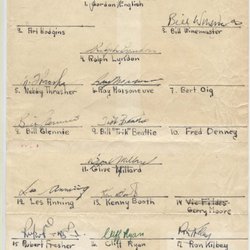 1. Gordon English
Bill Winemaster
3. Art Hodgins
2. Bill Winemaster
4. Ralph Lyndon
5. Nobby Thrasher
6. Ray Maisoneuve
7. Bert Oig
Bill Glennie
8. Bill Glennie
9. Bill "Tik" Beattie
10. Fred Denney
Clive Millard
11. Clive Millard
Les Anning
12. Les Anning
13. Kenny Booth
14. Vic Fildes
Gerry Moore
15. Robert Frasher
16. Cliff Ryan
17. Ron Kilbey